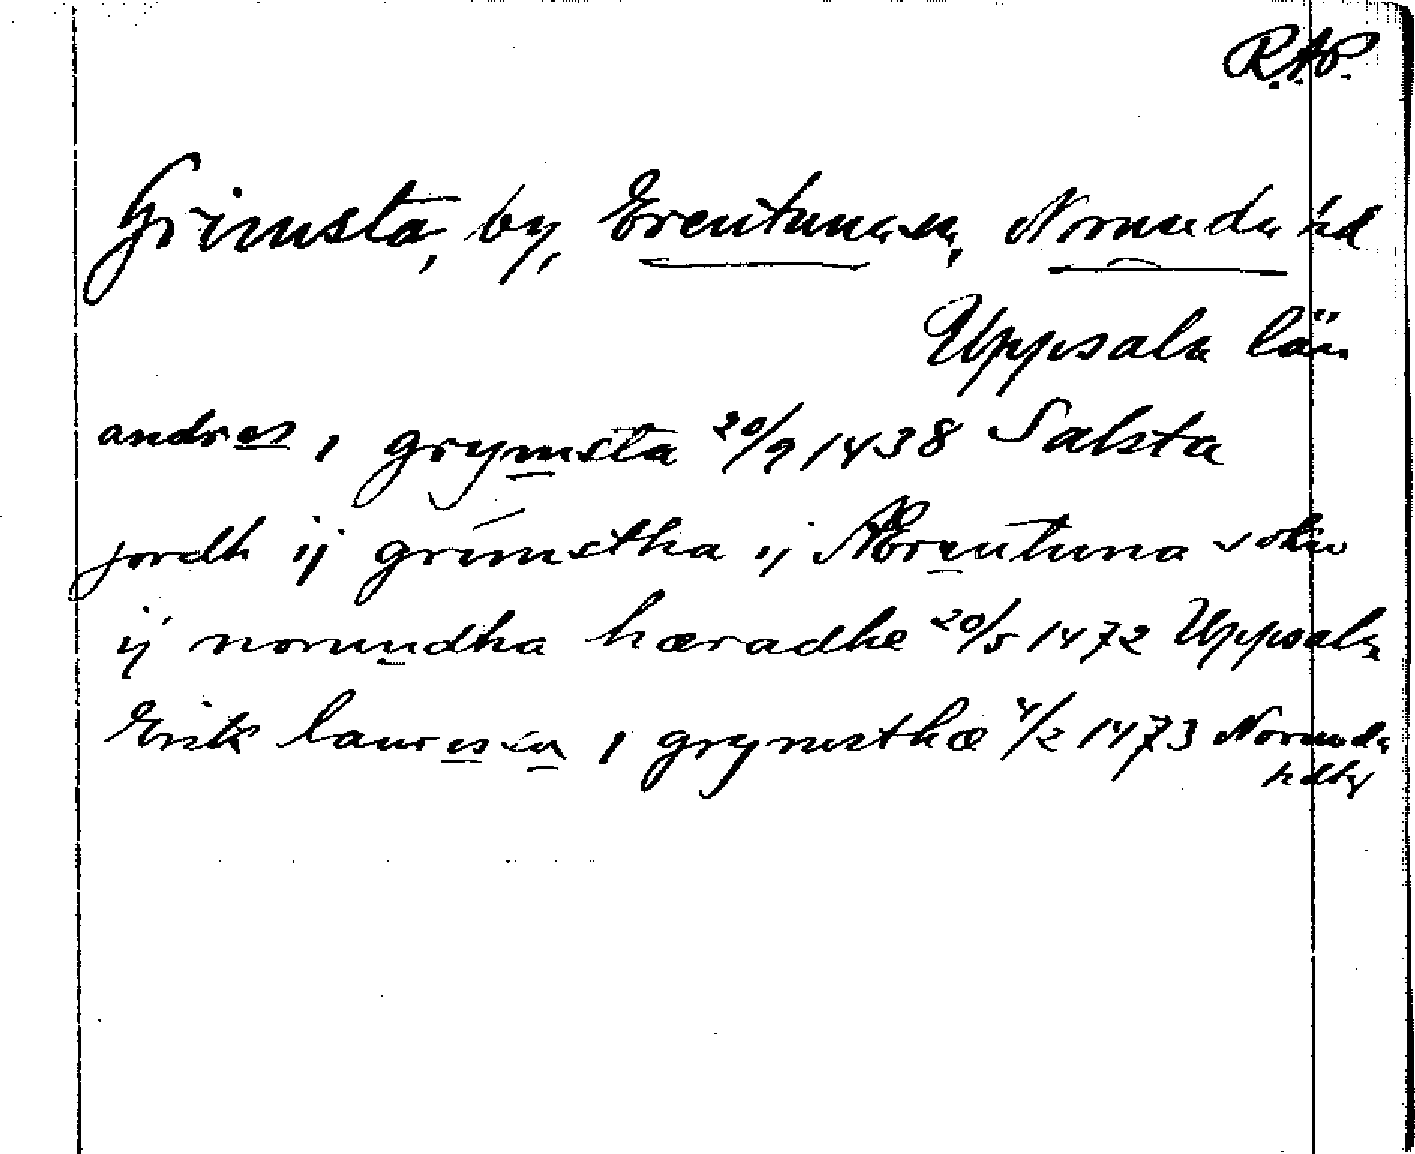 R.A.P.
Grimsta, by, Ärentuna sn, Norunda hd
Uppsala län
andres i grymsta 20/9 1438 Salsta
jordh ij grimstha ij Ærentuna sokn
ij norundha hæradhe 20/5 1472 Uppsala
Erik lauresson i grymsthæ 4/2 1473 Norunda
hdtg